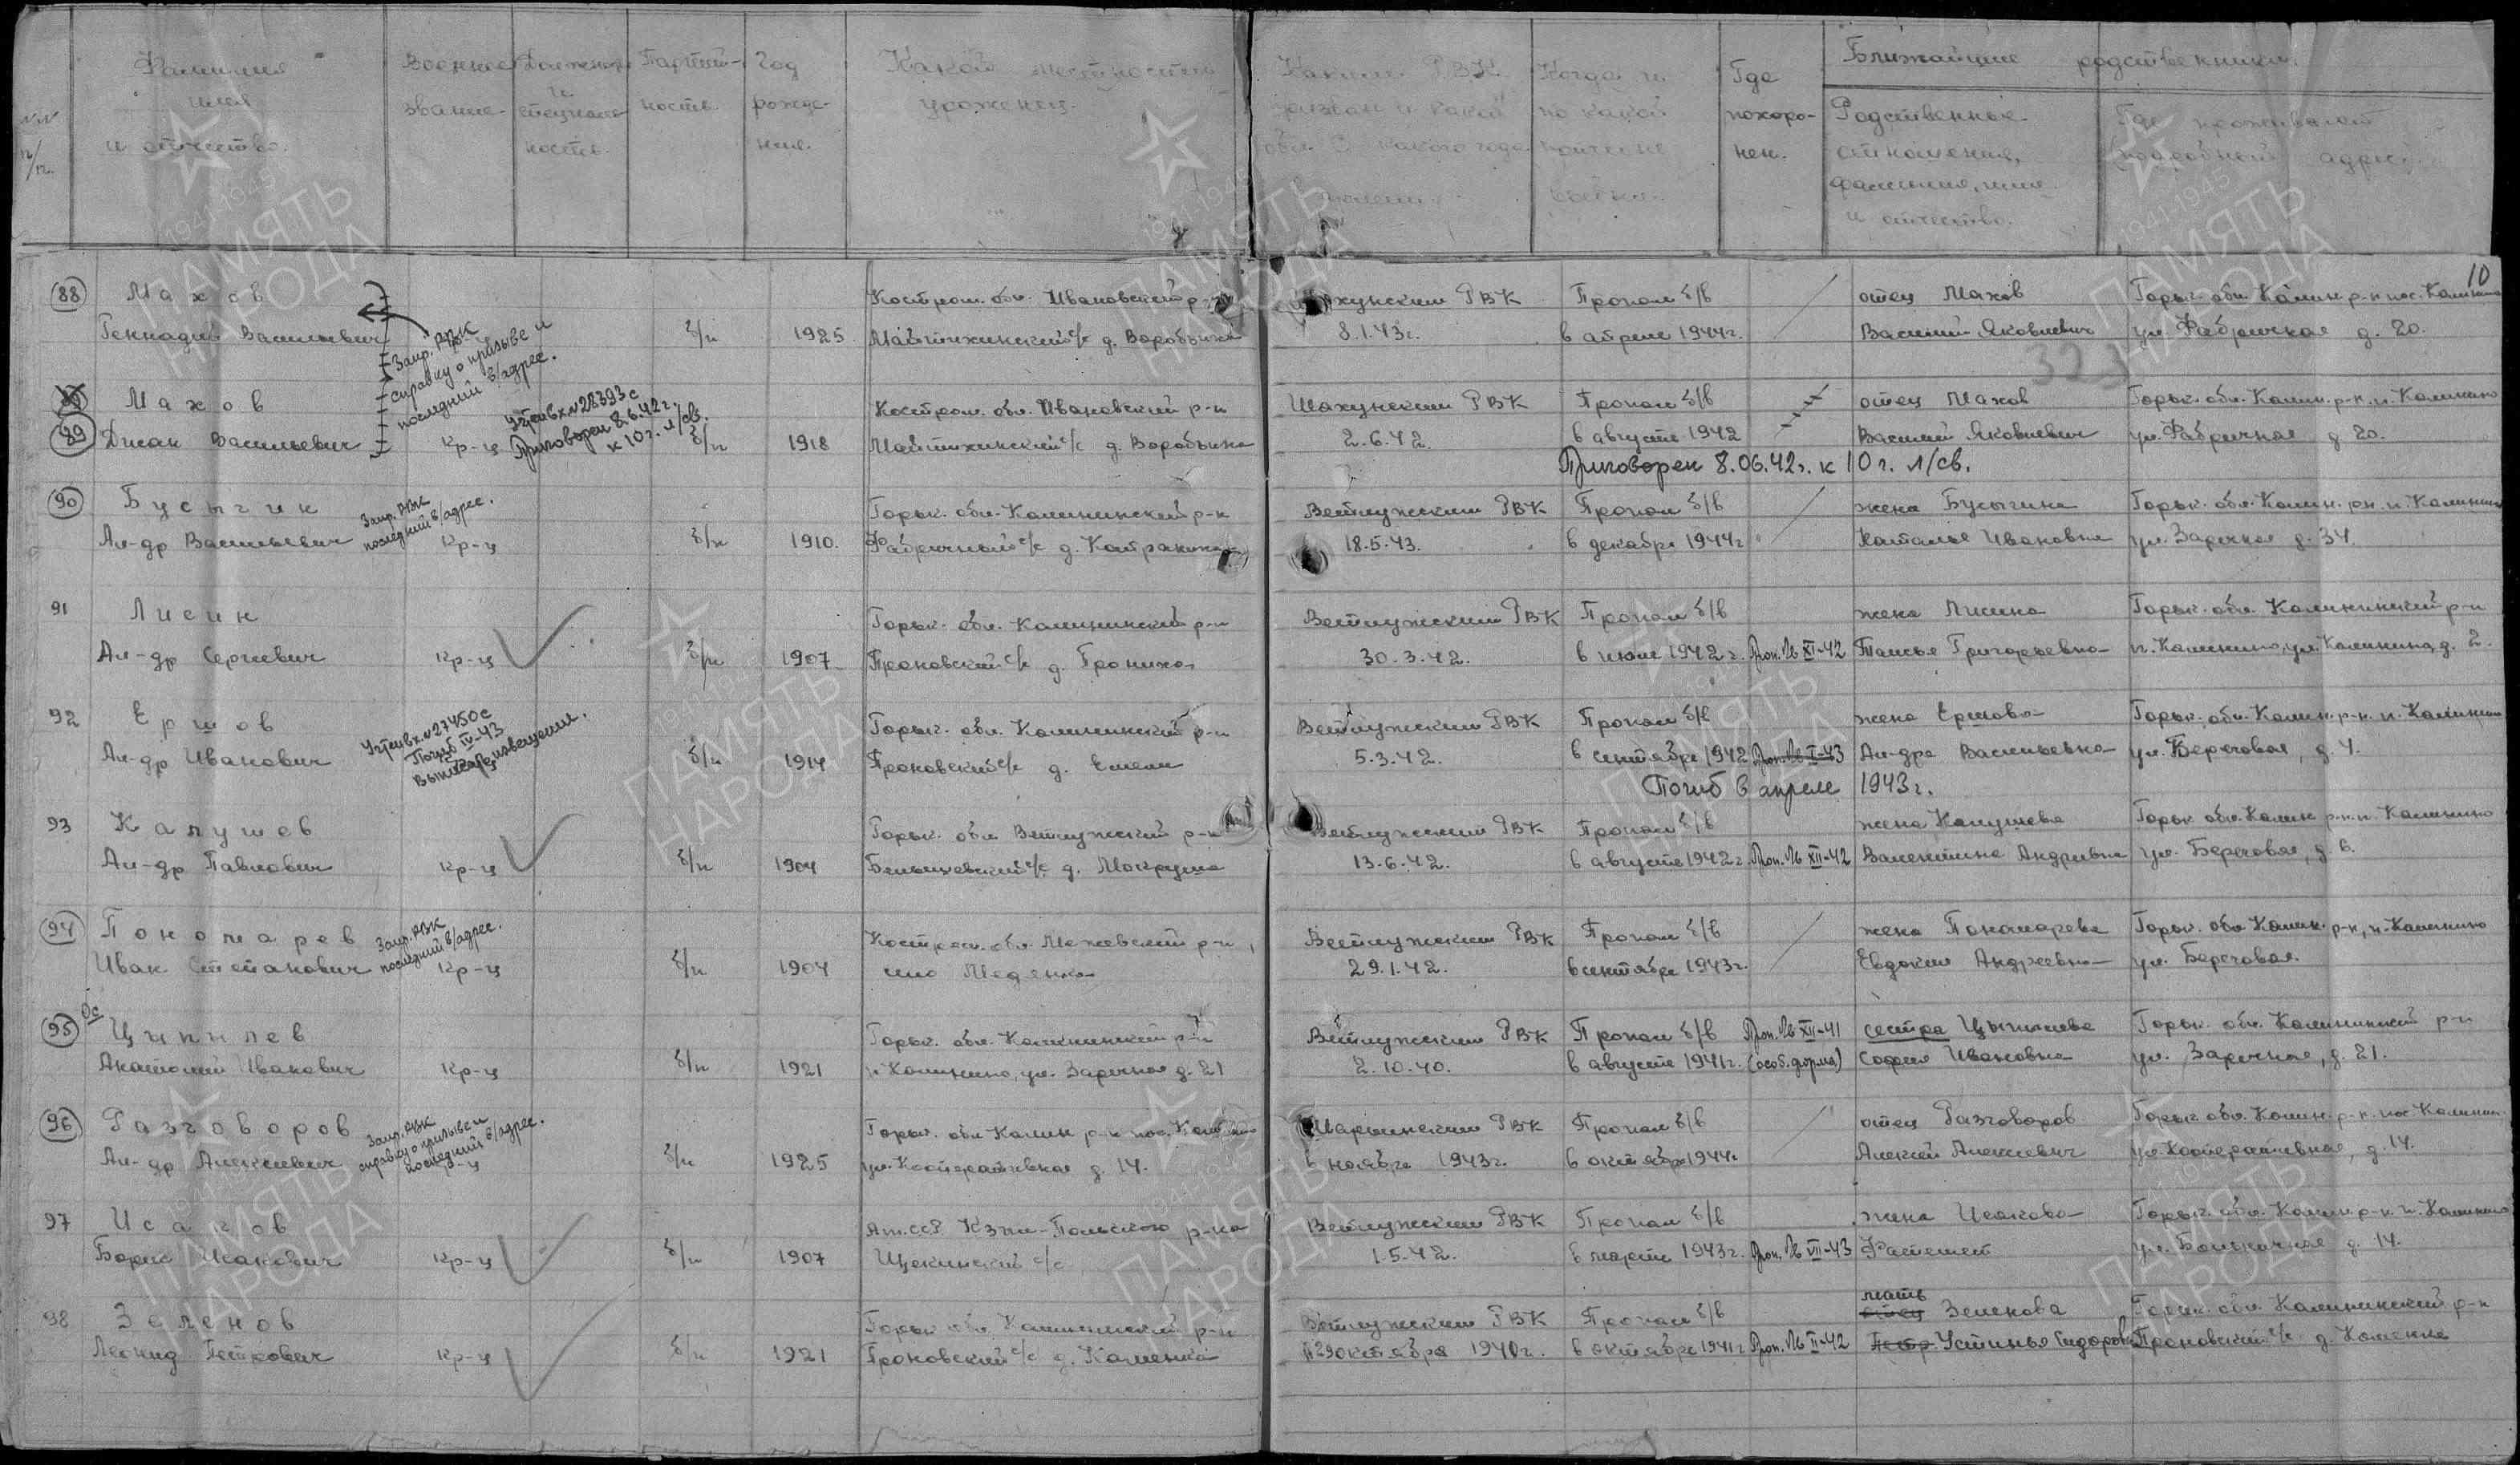 10
№№ п/п.
Фамилия имя и отчество.
Военное звание.
Должность и специальность.
Партийность.
Год рождения.
Какой местности уроженец.
Каким РВК призван и какой обл. С какого года
Когда и по какой причине выбыл.
Где похоронен.
Ближайшие родственники.
Родственные отношения, фамилия, имя и отчество.
Где проживают (подробный адрес)
88 Махов Костром. обл. Ивановский р-н РВК Пропал б/в отец Махов Горьк. обл. Калин. р-н пос. Калинино
Геннадий Васильевич б/п 1925 д. Воробьиха 8.1.43г. в апреле 1944г. Василий Яковлевич ул. Фабричная д. 20.
Запр. РВК
справку о призыве и
последний в/адрес.
89 Махов Костром. обл. Ивановский р-н Шахунским РВК Пропал б/в отец Махов Горьк. обл. Калин. р-н. п. Калинино
Васильевич кр-ц б/п 1918 д. Воробьиха 2.6.42. в августе 1942 Василий Яковлевич ул. Фабричная д. 20.
Учтен вх №28393с
Приговорен 8.6.42г.
к 10 г. л/св.
Приговорен 8.06.42г. к 10 г. л/св.
90 Бусыгин Горьк. обл. Калининский р-н Ветлужским РВК Пропал б/в жена Бусыгина Горьк. обл. Калин. рн. п. Калинино
Ал-др Васильевич кр-ц б/п 1910. Фабричный с/с д. 18.5.43. в декабре 1944г Наталья Ивановна ул. Заречная д. 34.
Запр. РВК
последний в/адрес.
91 Лисин Горьк. обл. Калининский р-н Ветлужским РВК Пропал б/в жена Лисина Горьк. обл. Калининский р-н
Ал-др Сергеевич кр-ц б/п 1907 Проновский с/с д. 30.3.42. в июле 1942г. Проп. № XI-42 Таисья Григорьевна п. Калинино, ул. Калинина, д. 2.
92 Ершов Горьк. обл. Калининский р-н Ветлужским РВК Пропал б/в жена Ершова Горьк. обл. Калин. р-н. п. Калинино
Ал-др Иванович б/п 1914 Проновский с/с д. 5.3.42. в сентябре 1942 Проп. № I-43 Ал-дра Васильевна ул. Береговая, д. 4.
Учтен вх №27450с
Погиб IV-43
извещение.
Погиб в апреле 1943г.
93 Калушев Горьк. обл. Ветлужский р-н Ветлужским РВК Пропал б/в жена Калушева Горьк. обл. Калин. р-н. п. Калинино
Ал-др Павлович кр-ц б/п 1904 с/с д. Мокруша 13.6.42. в августе 1942г. Проп. № XII-42 Валентина Андреевна ул. Береговая, д. 6.
94 Пономарев Костром. обл. Межевский р-н, Ветлужским РВК Пропал б/в жена Пономарева Горьк. обл. Калин. р-н, п. Калинино
Иван Степанович кр-ц б/п 1904 село 29.1.42. в сентябре 1943г. Евдокия Андреевна ул. Береговая.
Запр. РВК
последний в/адрес.
95 Ос Ципилев Горьк. обл. Калининский р-н Ветлужским РВК Пропал б/в Проп. № XII-41 сестра Горьк. обл. Калининский р-н
Анатолий Иванович кр-ц б/п 1921 п. Калинино, ул. Заречная д. 21 2.10.40. в августе 1941г. (особ. форма) София Ивановна ул. Заречная, д. 21.
96 Разговоров Горьк. обл. Калин р-н пос. Калинино Шарьинским РВК Пропал б/в отец Разговоров Горьк. обл. Калин. р-н. пос Калинин.
Ал-др Алексеевич кр-ц б/п 1925 ул. Кооперативная д. 14. в ноябре 1943г. в октябре 1944г Алексей Алексеевич ул. Кооперативная, д. 14.
Запр. РВК
справку о призыве и
последний в/адрес.
97 Исаков р-на Ветлужским РВК Пропал б/в жена Исакова Горьк. обл. Калин. р-н п. Калинино
Борис Исакович кр-ц б/п 1907 Щекинский с/с 1.5.42. в марте 1943г. Проп. № VII-43 ул. Больничная д. 14.
98 Зеленов Горьк. обл. Калининский р-н Ветлужским РВК Пропал б/в мать отец Зеленова Горьк. обл. Калининский р-н
Леонид Петрович кр-ц б/п 1921 Проновский с/с д. Каменка 29 октября 1940г. в октябре 1941г Проп. № II-42 Устинья Сидоров. Проновский с/с д. Каменка
ПАМЯТЬ НАРОДА
1941-1945